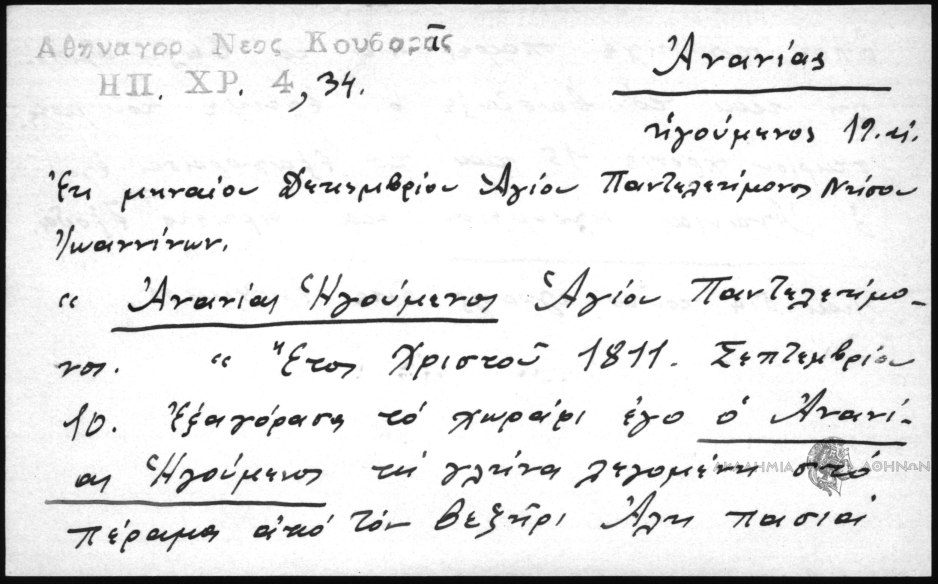 Αθηναγορ Νεος Κουβαρᾶς
ΗΠ. ΧΡ. 4, 34.
Ἀνανίας
ἡγούμενος 19. αἰ.
Ἐκ μηναίου Δεκεμβρίου Ἁγίου Παντελεήμονος Νήσου
Ἰωαννίνων.
" Ἀνανίας Ἡγούμενος Ἁγίου Παντελεήμο-
νος. " Ἔτος Χριστοῦ 1811. Σεπτεμβρίου
10. Ἐξαγόρασα τό χωράφι ἐγο ὁ Ἀνανί-
ας Ἡγούμενος λεγομένη στό
πέραμα ἀπό τόν βεζήρι Ἀλη πασιά
ΑΚΑΔΗΜΙΑ ΑΘΗΝΩΝ